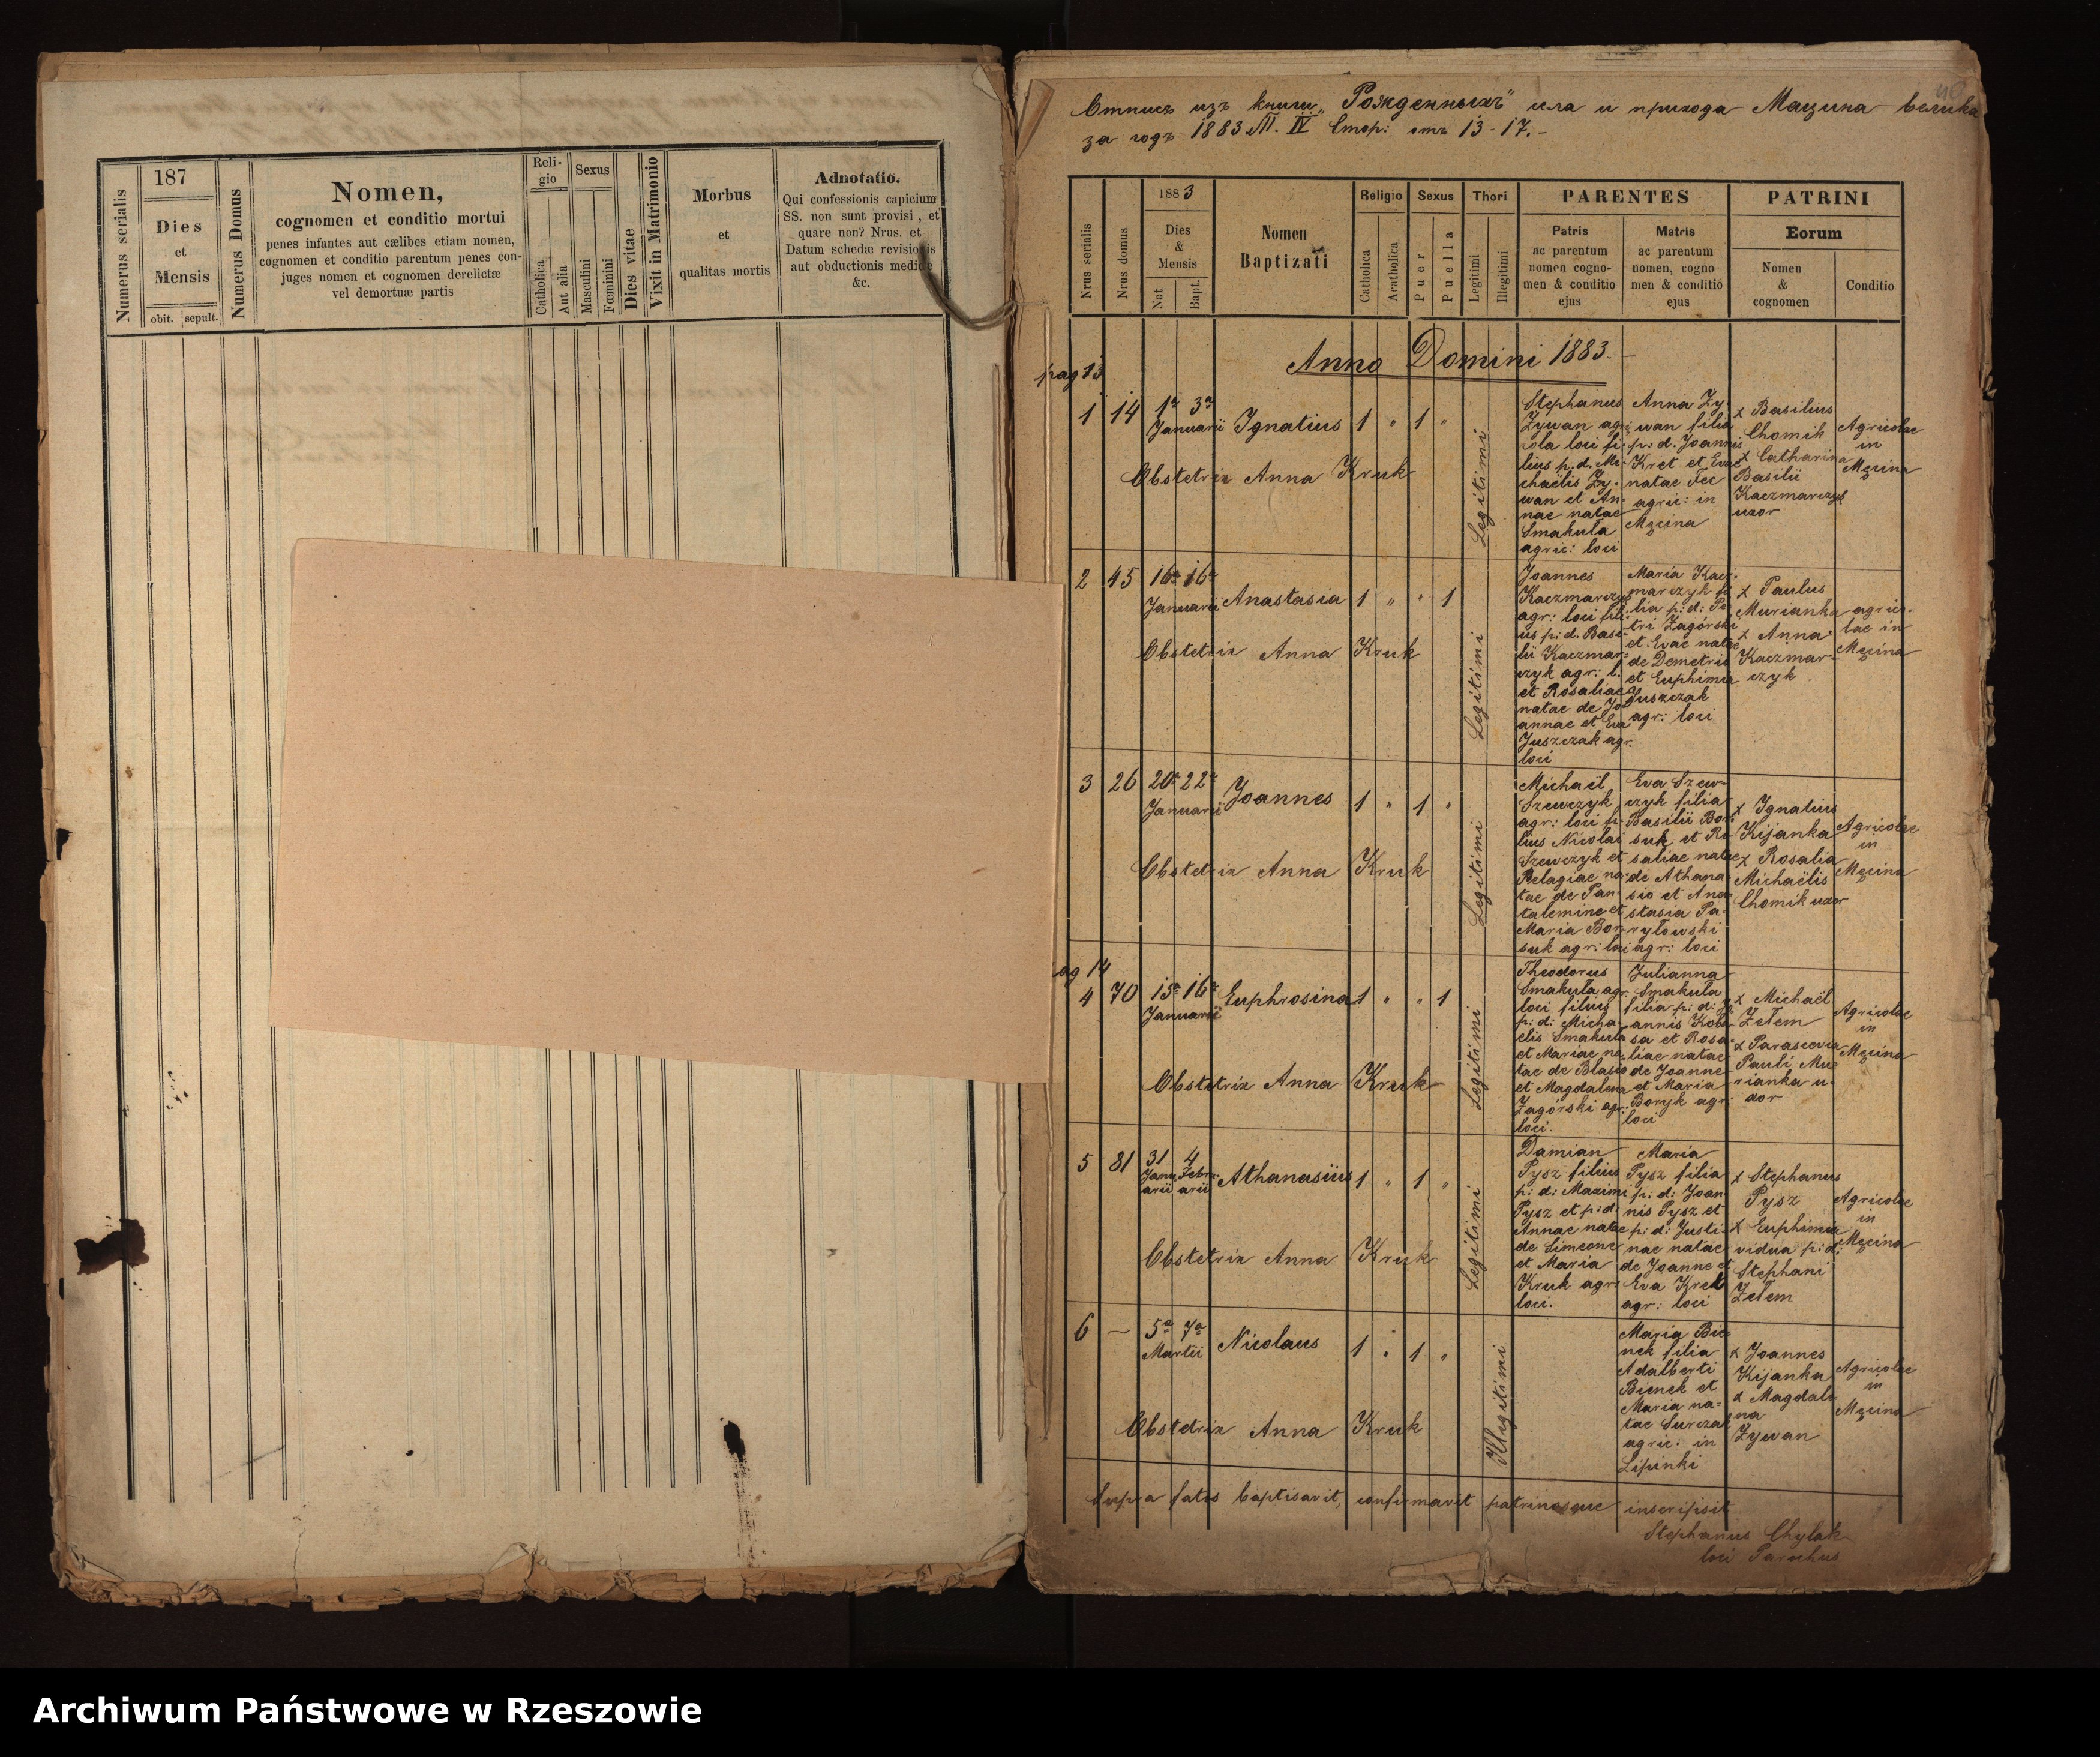 187
Numerus serialis
Dies
et
Mensis
obit. sepult.
Numerus Domus
Nomen,
cognomen et conditio mortui
penes infantes aut cælibes etiam nomen,
cognomen et conditio parentum penes con-
juges nomen et cognomen derelictæ
vel demortuæ partis
Reli-
gio
Catholica
Aut alia
Sexus
Masculini
Fœminini
Dies vitae
Vixit in Matrimonio
Morbus
et
qualitas mortis
Adnotatio.
Qui confessionis capicium
SS. non sunt provisi, et
quare non? Nrus. et
Datum schedæ revisionis
aut obductionis medicæ
&c.
Отпись изъ книги „Рожденныхъ" села и прихода Мацина велика
за годъ 1883 Т. IV Стор: отъ 13-17.-
Nrus serialis
Nrus domus
1883
Dies
&
Mensis
Nat.
Bapt.
Nomen
Baptizati
Religio
Catholica
Acatholica
Sexus
Puer
Puella
Thori
Legitimi
Illegitimi
PARENTES
Patris
ac parentum
nomen cogno-
men & conditio
ejus
Matris
ac parentum
nomen, cogno
men & conditio
ejus
PATRINI
Eorum
Nomen
&
cognomen
Conditio
Anno Domini 1883.
pag 13
1 14 1a 3a
Januarii
Ignatius 1 " 1 "
Legitimi
Obstetrix Anna Kruk
Stephanus
Zywan agri
cola loci fi-
lius p. d. Mi-
chaëlis Zy-
wan et An-
nae natae
Smakula
agric: loci
Anna Zy
wan filia
p: d. Joannis
Kret et Evae
natae Fec
agric: in
Męcina
x Basilius
Chomik
x Catharina
Basilii
Kaczmarczyk
uxor
Agricolae
in
Męcina
2 45 16a 16a
Januarii
Anastasia 1 " " 1
Legitimi
Obstetrix Anna Kruk
Joannes
Kaczmarczyk
agr: loci fili-
us p: d. Basi-
lii Kaczmar-
czyk agr: l.
et Rosaliae
natae de Jo
annae et Eva
Juszczak agr.
loci
Maria Kacz-
marczyk fi
lia p: d: Pe
tri Zagórski
et Evae natae
de Demetrio
et Euphimia
Juszczak
agr: loci
x Paulus
Murianka
x Anna
Kaczmar-
czyk
agrico-
lae in
Męcina
3 26 20a 22a
Januarii
Joannes 1 " 1 "
Legitimi
Obstetrix Anna Kruk
Michaël
Szewczyk
agr: loci fi-
lius Nicolai
Szewczyk et
Pelagiae na-
tae de Pan-
talemine et
Maria Bor-
suk agr: loci
Eva Szew-
czyk filia
Basilii Bor-
suk et Ro
saliae natae
de Athana
sio et Ana-
stasia Pa-
ryłowski
agr: loci
x Ignatius
Kijanka
x Rosalia
Michaëlis
Chomik uxor
Agricolae
in
Męcina
pag 14
4 70 15a 16a
Januarii
Euphrosina 1 " " 1
Legitimi
Obstetrix Anna Kruk
Theodorus
Smakula agr.
loci filius
p: d: Micha-
elis Smakula
et Mariae na-
tae de Blasio
et Magdalena
Zagórski agr:
loci.
Julianna
Smakula
filia p: d: Jo
annis Kob
sa et Rosa-
liae natae
de Joanne
et Maria
Boryk agr:
loci
x Michaël
Zełem
x Parascevia
Pauli Mu-
rianka u-
xor
Agricolae
in
Męcina
5 81 31 4
Janu Febru
arii arii
Athanasius 1 " 1 "
Legitimi
Obstetrix Anna Kruk
Damian
Pysz filius
p: d: Maximi
Pysz et p: d:
Annae natae
de Simeone
et Maria
Kruk agr:
loci.
Maria
Pysz filia
p: d: Joan
nis Pysz et
p: d: Justi-
nae natae
de Joanne et
Eva Kret
agr: loci
x Stephanus
Pysz
x Euphimia
vidua p: d:
Stephani
Zełem
Agricolae
in
Męcina
6 — 5a 7a
Martii
Nicolaus 1 " 1 "
Illegitimi
Obstetrix Anna Kruk
Maria Bie
nek filia
Adalberti
Bienek et
Maria na-
tae Surczak
agric: in
Lipinki
x Joannes
Kijanka
x Magdale
na
Zywan
Agricolae
in
Męcina
Supra fatos baptisavit, confirmavit patrinosque inscripsit
Stephanus Chylak
loci Parochus
Archiwum Państwowe w Rzeszowie